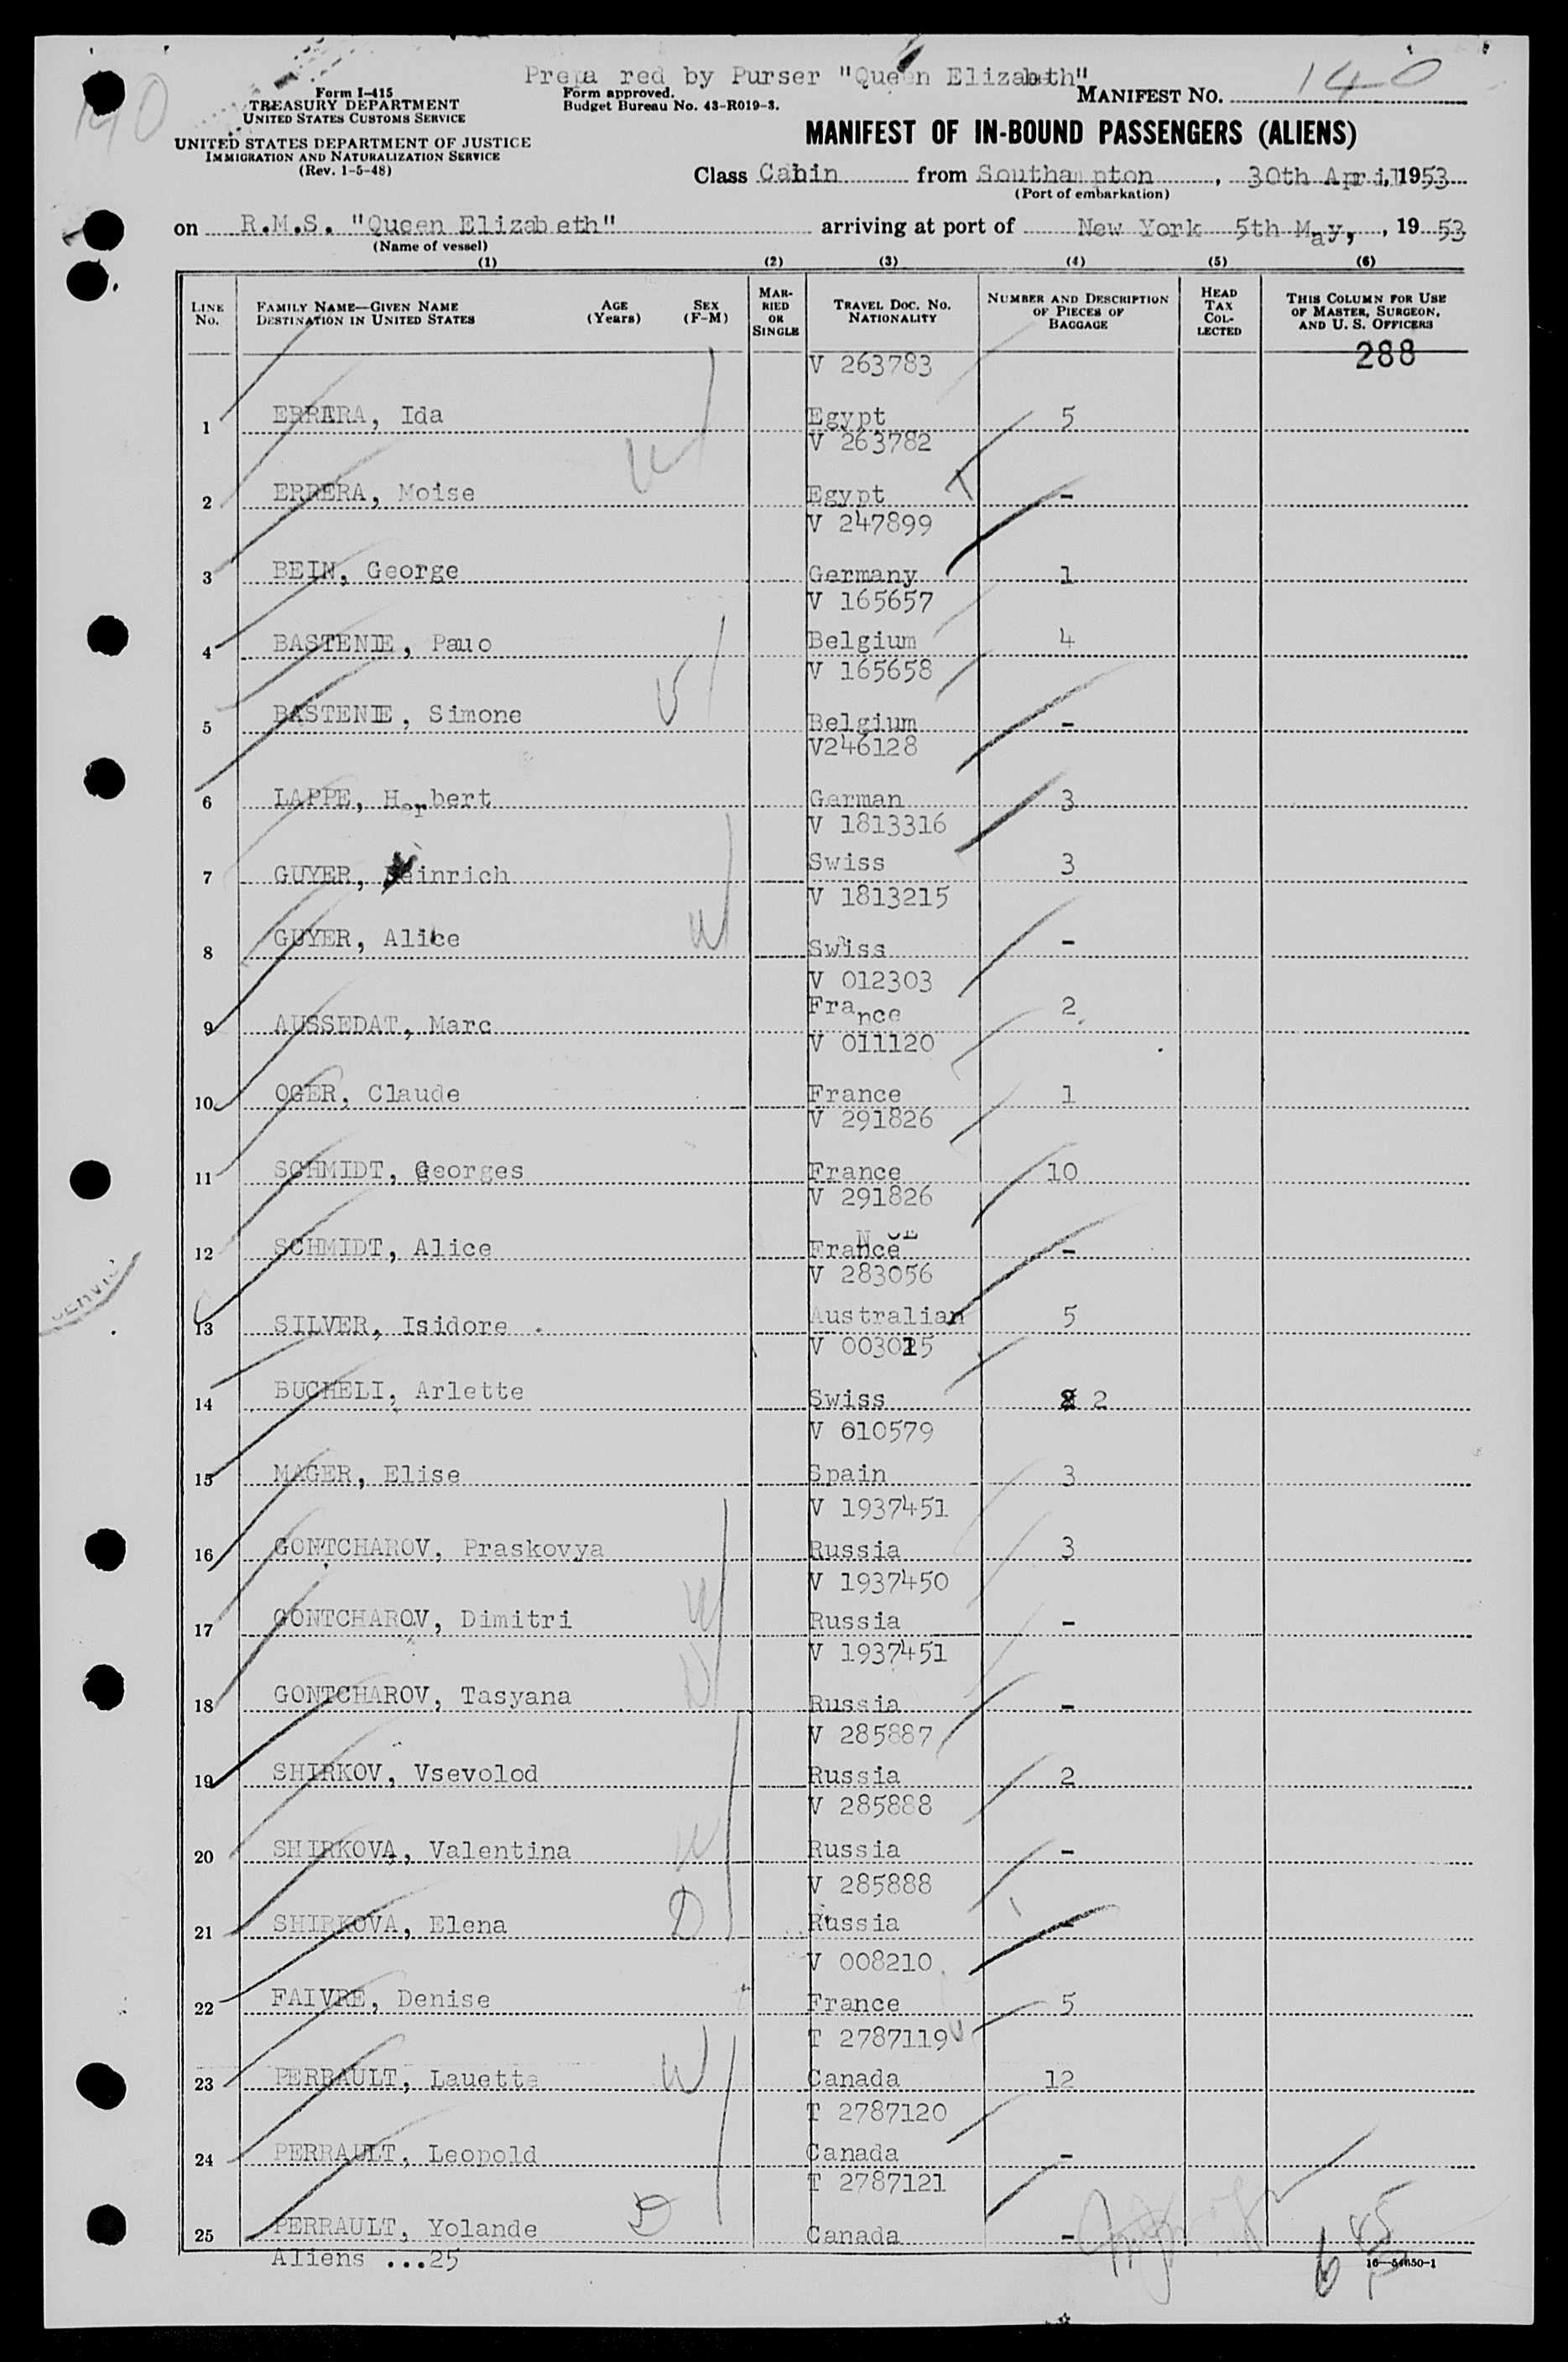 Prepa red by Purser "Queen Elizabeth"
140
Form I-415
TREASURY DEPARTMENT
UNITED STATES CUSTOMS SERVICE
UNITED STATES DEPARTMENT OF JUSTICE
IMMIGRATION AND NATURALIZATION SERVICE
(Rev. 1-5-48)
Form approved.
Budget Bureau No. 43-R019-3.
MANIFEST NO. 140
MANIFEST OF IN-BOUND PASSENGERS (ALIENS)
Class Cabin from Southampton, 30th April, 1953
(Port of embarkation)
on R.M.S. "Queen Elizabeth" arriving at port of New York 5th May, , 19 53
(Name of vessel)
(1) (2) (3) (4) (5) (6)
LINE No. FAMILY NAME—GIVEN NAME DESTINATION IN UNITED STATES AGE (Years) SEX (F-M) MARRIED OR SINGLE TRAVEL DOC. No. NATIONALITY NUMBER AND DESCRIPTION OF PIECES OF BAGGAGE HEAD TAX COLLECTED THIS COLUMN FOR USE OF MASTER, SURGEON, AND U. S. OFFICERS
288
V 263783
1 ERRERA, Ida Egypt 5
W
V 263782
2 ERRERA, Moise Egypt -
V 247899
3 BEIN, George Germany 1
V 165657
4 BASTENIE, Pauo Belgium 4
V 165658
5 BASTENIE, Simone Belgium -
V246128
6 LAPPE, Herbert German 3
V 1813316
7 GUYER, Heinrich Swiss 3
V 1813215
8 GUYER, Alice W Swiss -
V 012303
9 AUSSEDAT, Marc France 2
V 011120
10 OGER, Claude France 1
V 291826
11 SCHMIDT, Georges France 10
V 291826
12 SCHMIDT, Alice France -
V 283056
13 SILVER, Isidore Australian 5
V 003015
14 BUCHELI, Arlette Swiss 2
V 610579
15 MAGER, Elise Spain 3
V 1937451
16 GONTCHAROV, Praskovya Russia 3
V 1937450
17 GONTCHAROV, Dimitri W Russia -
V 1937451
18 GONTCHAROV, Tasyana D Russia -
V 285887
19 SHIRKOV, Vsevolod Russia 2
V 285888
20 SHIRKOVA, Valentina W Russia -
V 285888
21 SHIRKOVA, Elena D Russia -
V 008210
22 FAIVRE, Denise France 5
T 2787119
23 PERRAULT, Lauette W Canada 12
T 2787120
24 PERRAULT, Leopold Canada -
T 2787121
25 PERRAULT, Yolande D Canada -
Aliens ...25
16—54650-1